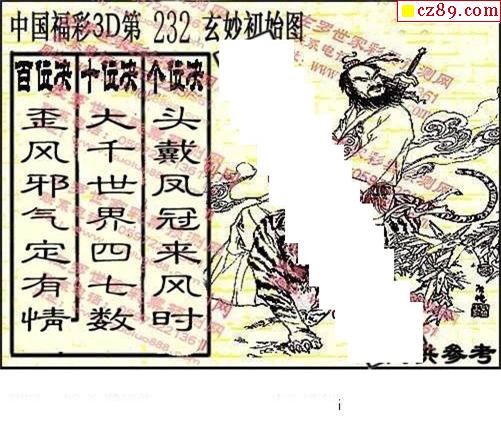 cz89.com
中国福彩3D第 232 玄妙初始图
百位决 十位决 个位决
歪风邪气定有情
大千世界四七数
头戴凤冠来风时
供参考
i